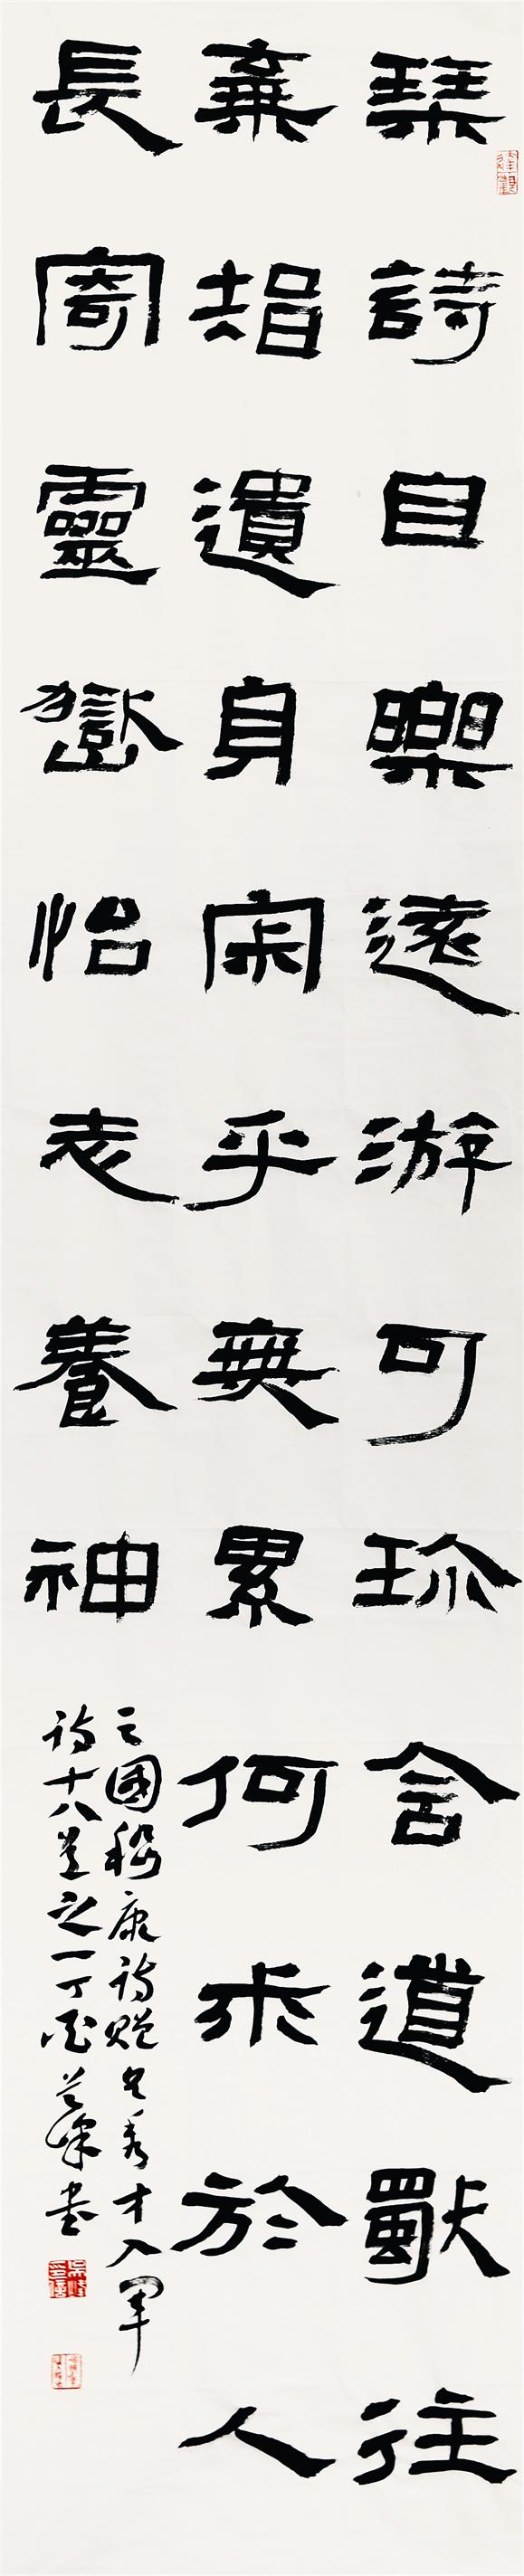 琹詩自樂遠游可珎含道獸往
棄智遺身宋乎無累何求於人
長寄靈嶽怡志養神
三國嵇康詩贈兄秀才入軍
詩十八首之一丁酉 峰書